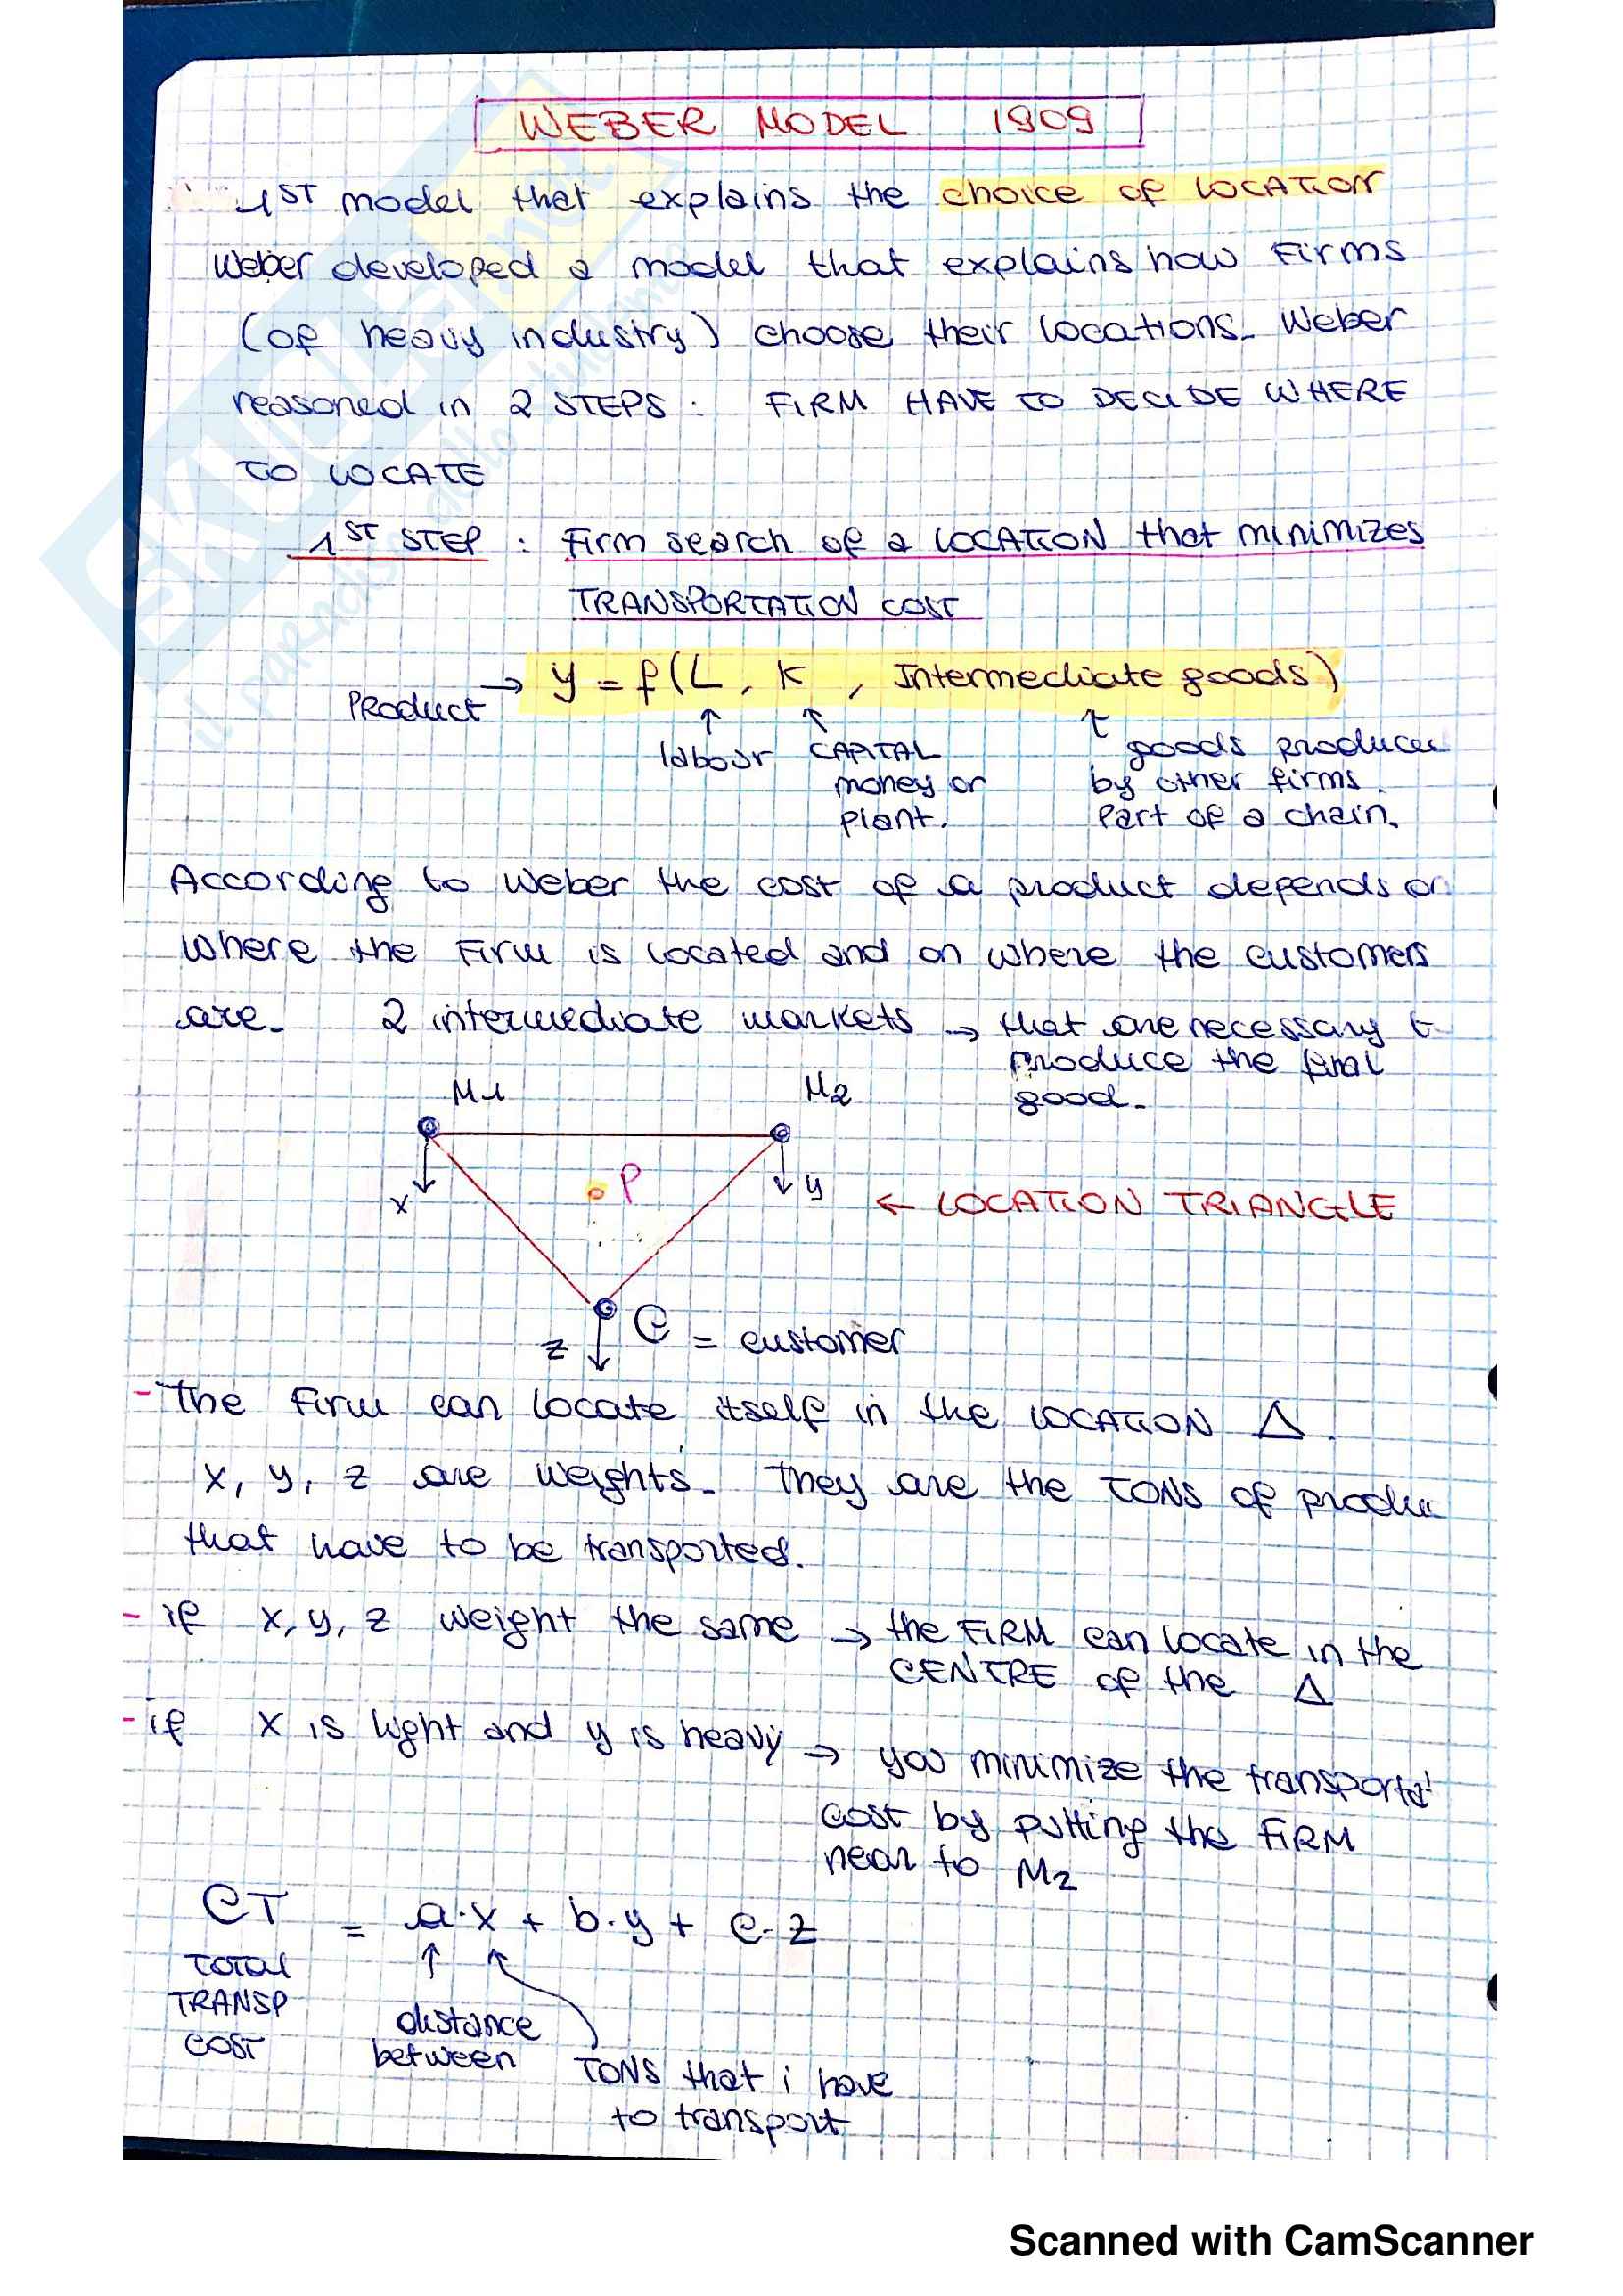 WEBER MODEL 1909
1ST model that explains the choice of LOCATION
Weber developed a model that explains how Firms
(of heavy industry) choose their locations. Weber
reasoned in 2 STEPS: FIRM HAVE TO DECIDE WHERE
TO LOCATE
1ST STEP : Firm search of a LOCATION that minimizes
TRANSPORTATION COST
PRODUCT → y = f(L, K, Intermediate goods)
↑ ↑ ↑
labour CAPITAL goods produced
money or by other firms.
plant. Part of a chain.
According to Weber the cost of a product depends on
where the Firm is located and on where the customers
are. 2 intermediate markets → that are necessary t
produce the final
good.
M1 M2
P
x y ← LOCATION TRIANGLE
C = customer
z
- The Firm can locate itself in the LOCATION Δ.
x, y, z are weights. They are the TONS of produc
that have to be transported.
- if x, y, z weight the same → the FIRM can locate in the
CENTRE of the Δ
- if x is light and y is heavy → you minimize the transportat
cost by putting the FIRM
near to M2
CT = a·x + b·y + c·z
TOTAL
TRANSP
COST
distance
between
TONS that i have
to transport
SKUOLA.net
Scanned with CamScanner